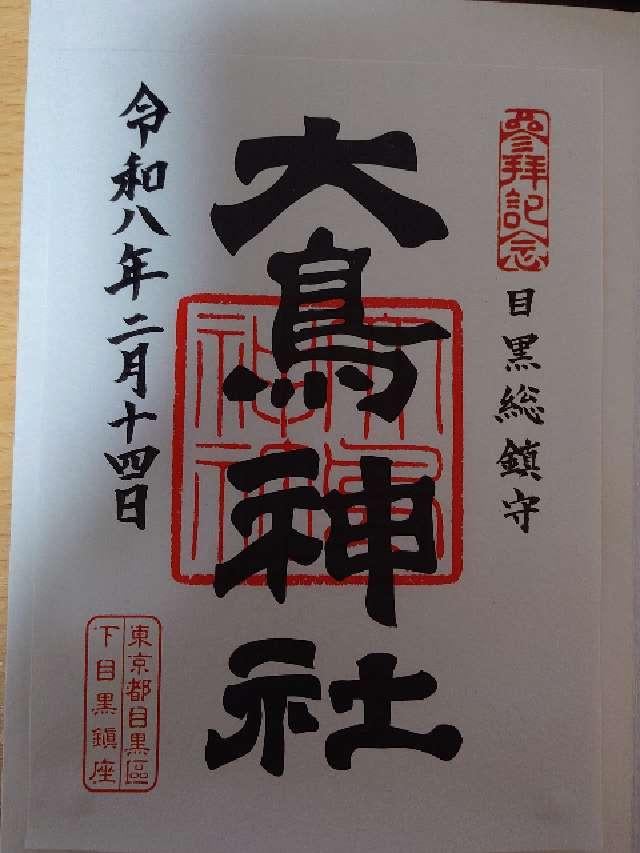 參拜記念
目黒総鎮守
大鳥神社
大鳥神社
令和八年二月十四日
東京都目黒區
下目黒鎮座